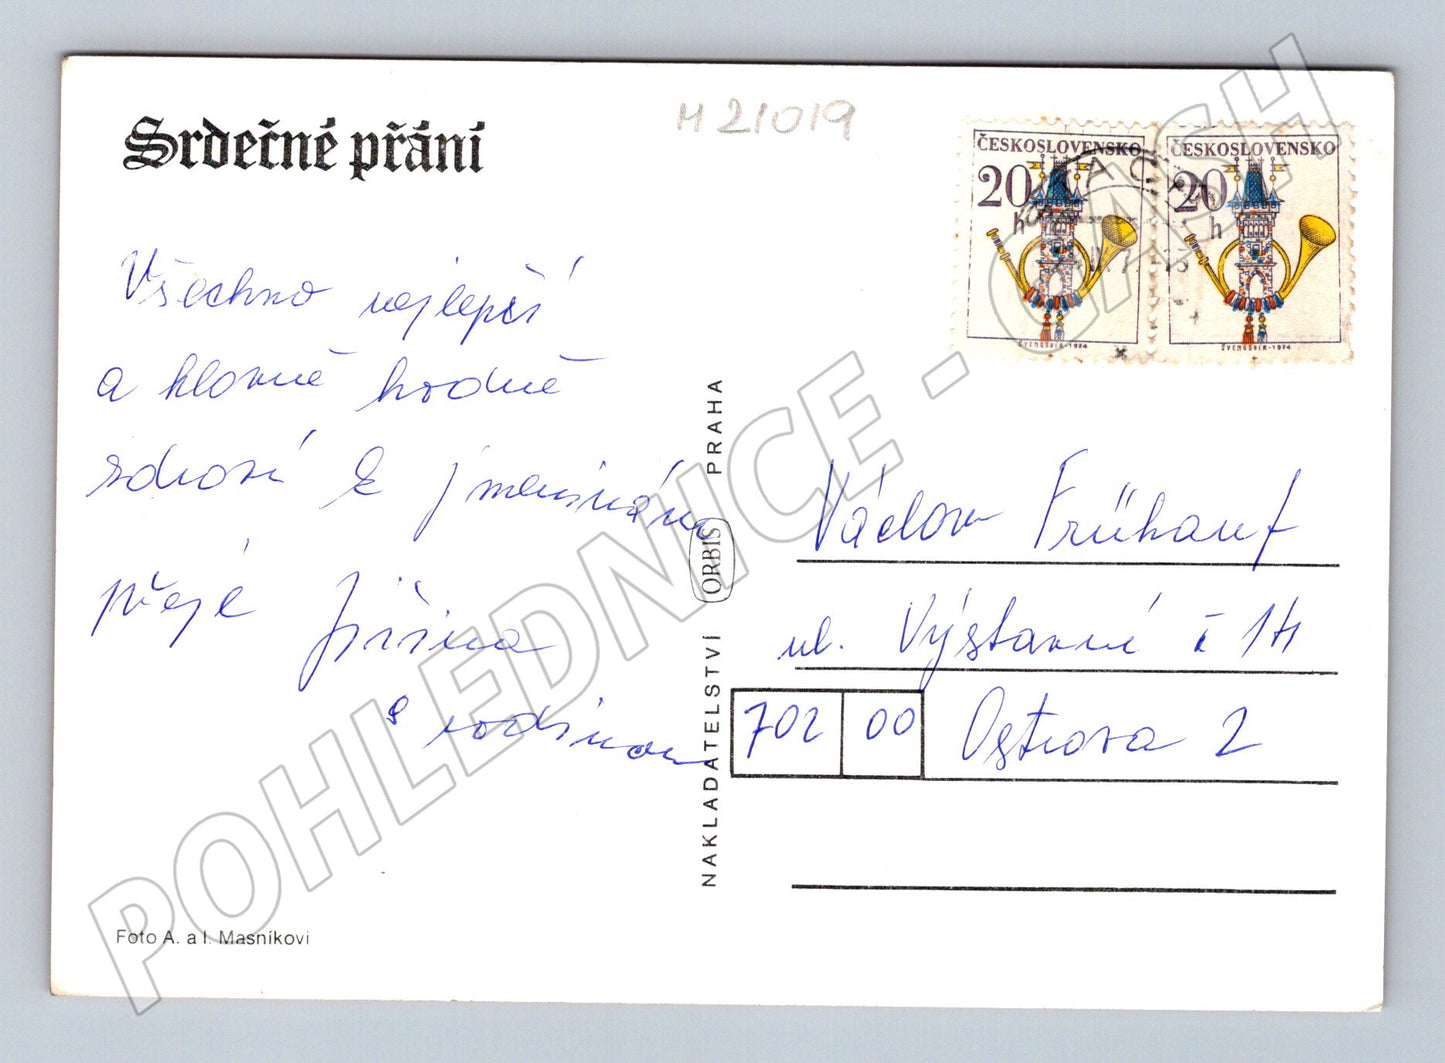 Srdečné přání
M 21019
ČESKOSLOVENSKO
20
h
ŠVENGSBÍR-1974
ČESKOSLOVENSKO
20
h
ŠVENGSBÍR-1974
Všechno nejlepší
a hlavně hodně
zdraví k jmeninám
přeje Jiřina
s rodinou
NAKLADATELSTVÍ ORBIS PRAHA
Václav Frühauf
ul. Výstavní č 14
702 00 Ostrava 2
Foto A. a I. Masníkovi
POHLEDNICE - CASH